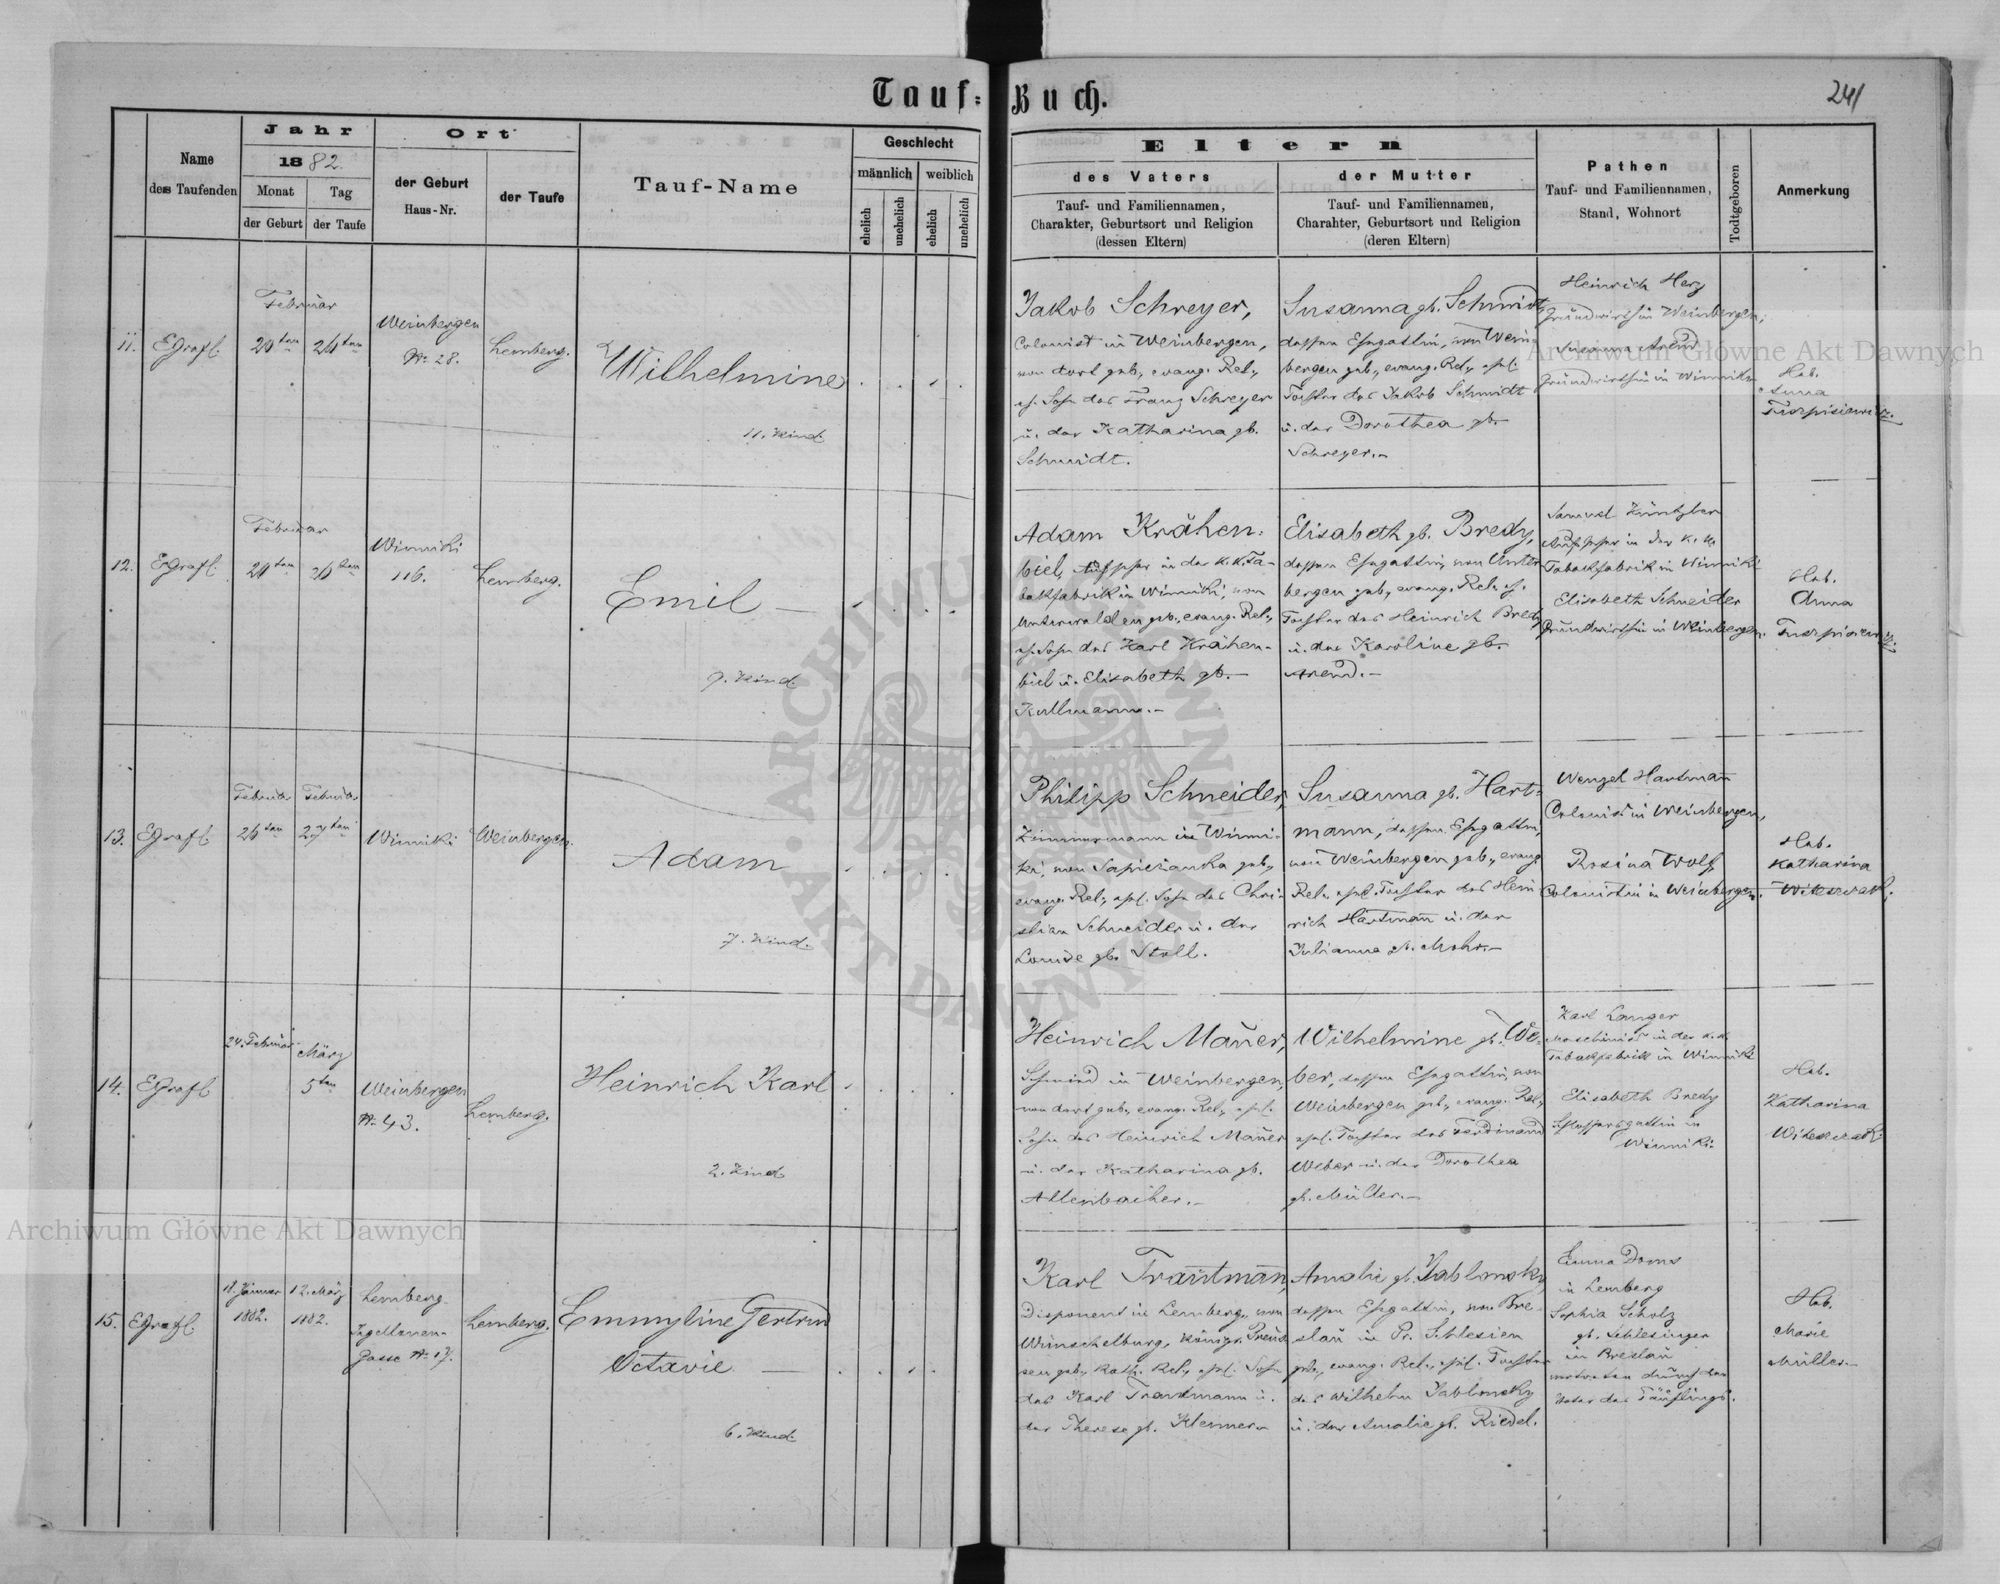 Tauf-Buch.
241
Name
des Taufenden
Jahr
1882.
Monat
der Geburt
Tag
der Taufe
Ort
der Geburt
Haus-Nr.
der Taufe
Tauf-Name
Geschlecht
männlich
weiblich
ehelich
unehelich
ehelich
unehelich
Eltern
des Vaters
Tauf- und Familiennamen,
Charakter, Geburtsort und Religion
(dessen Eltern)
der Mutter
Tauf- und Familiennamen,
Charahter, Geburtsort und Religion
(deren Eltern)
Pathen
Tauf- und Familiennamen,
Stand, Wohnort
Todtgeboren
Anmerkung
11.
Februar
Weinbergen
Nr. 28.
Lemberg.
Wilhelmine
11. Kind.
Jakob Schreyer,
Colonist in Weinbergen,
von dort geb., evang. Rel.,
Sohn des Franz Schreyer
u. der Katharina gb.
Schmidt.
Susanna gb. Schmidt,
dessen Ehegattin, von Wein-
bergen geb., evang. Rel.,
Tochter des Jakob Schmidt
u. der Dorothea gb.
Schreyer.-
Heinrich Herz
Grundwirth in Weinbergen,
Susanna Arend
Grundwirthin in Winniki
Heb.
Anna
12.
Februar
Winniki
116.
Lemberg.
Emil
9. Kind.
Adam Krähen-
biel, Aufseher in der k.k. Ta-
bakfabrik in Winniki, von
Unterwalden geb., evang. Rel.,
Sohn des Karl Krähen-
biel u. Elisabeth gb.-
Kullmann.-
Elisabeth gb. Bredy,
dessen Ehegattin, von Unter
bergen geb., evang. Rel.
Tochter des Heinrich Bredy
u. der Karoline gb.
Arend.-
Samuel
Aufseher in der k. k.
Tabakfabrik in Winniki
Elisabeth Schneider
Grundwirthin in Weinbergen.
Heb.
Anna
13.
Winniki
Weinbergen.
Adam
7. Kind.
Philipp Schneider,
Zimmermann in Winni-
ki, von Sapiezanka geb.,
evang. Rel., Sohn des Chri-
stian Schneider u. der
Louise gb. Stoll.
Susanna gb. Hart-
mann, dessen Ehegattin,
von Weinbergen geb., evang.
Rel., Tochter des Hein
rich Hartmann u. der
Julianna gb. Mohr.-
Wenzel Hartmann
Colonist in Weinbergen,
Rosina Wolf,
Colonistin in Weinbergen.
Heb.
Katharina
14.
24. Februar
März
5ten
Weinbergen
Nr. 43.
Lemberg.
Heinrich Karl
2. Kind
Heinrich Mauer,
Schmied in Weinbergen,
von dort geb., evang. Rel.,
Sohn des Heinrich Mauer
u. der Katharina gb.
Allenbacher.-
Wilhelmine gb. We-
ber, dessen Ehegattin, von
Weinbergen geb., evang. Rel.,
Tochter des Ferdinand
Weber u. der Dorothea
gb. Müller.-
Karl Langer
Maschinist in der k.k.
Tabakfabrik in Winniki
Elisabeth Bredy
Schlossersgattin in
Winniki.
Heb.
Katharina
15.
18. Jänner
1882.
12. März
1882.
Lemberg
Jagellonen-
gasse Nr. 17.
Lemberg.
Emmyline Gertrud
Octavie
6. Kind.
Karl Trautmann,
Disponent in Lemberg, von
Wünschelburg, Königr. Preus
sen geb., kath. Rel., Sohn
des Karl Trautmann u.
der Therese gb. Klenner.
Amalie gb. Jablonsky,
dessen Ehegattin, von Bre-
slau in Pr. Schlesien
geb., evang. Rel., Tochter
des Wilhelm Jablonsky
u. der Amalie gb. Riedel.
Emma Doms
in Lemberg
Sophia Scholz
gb. Schlesinger
in Breslau
vertreten durch den
Vater des Täuflings.
Heb.
Marie
Müller.-
Archiwum Główne Akt Dawnych
Archiwum Główne Akt Dawnych